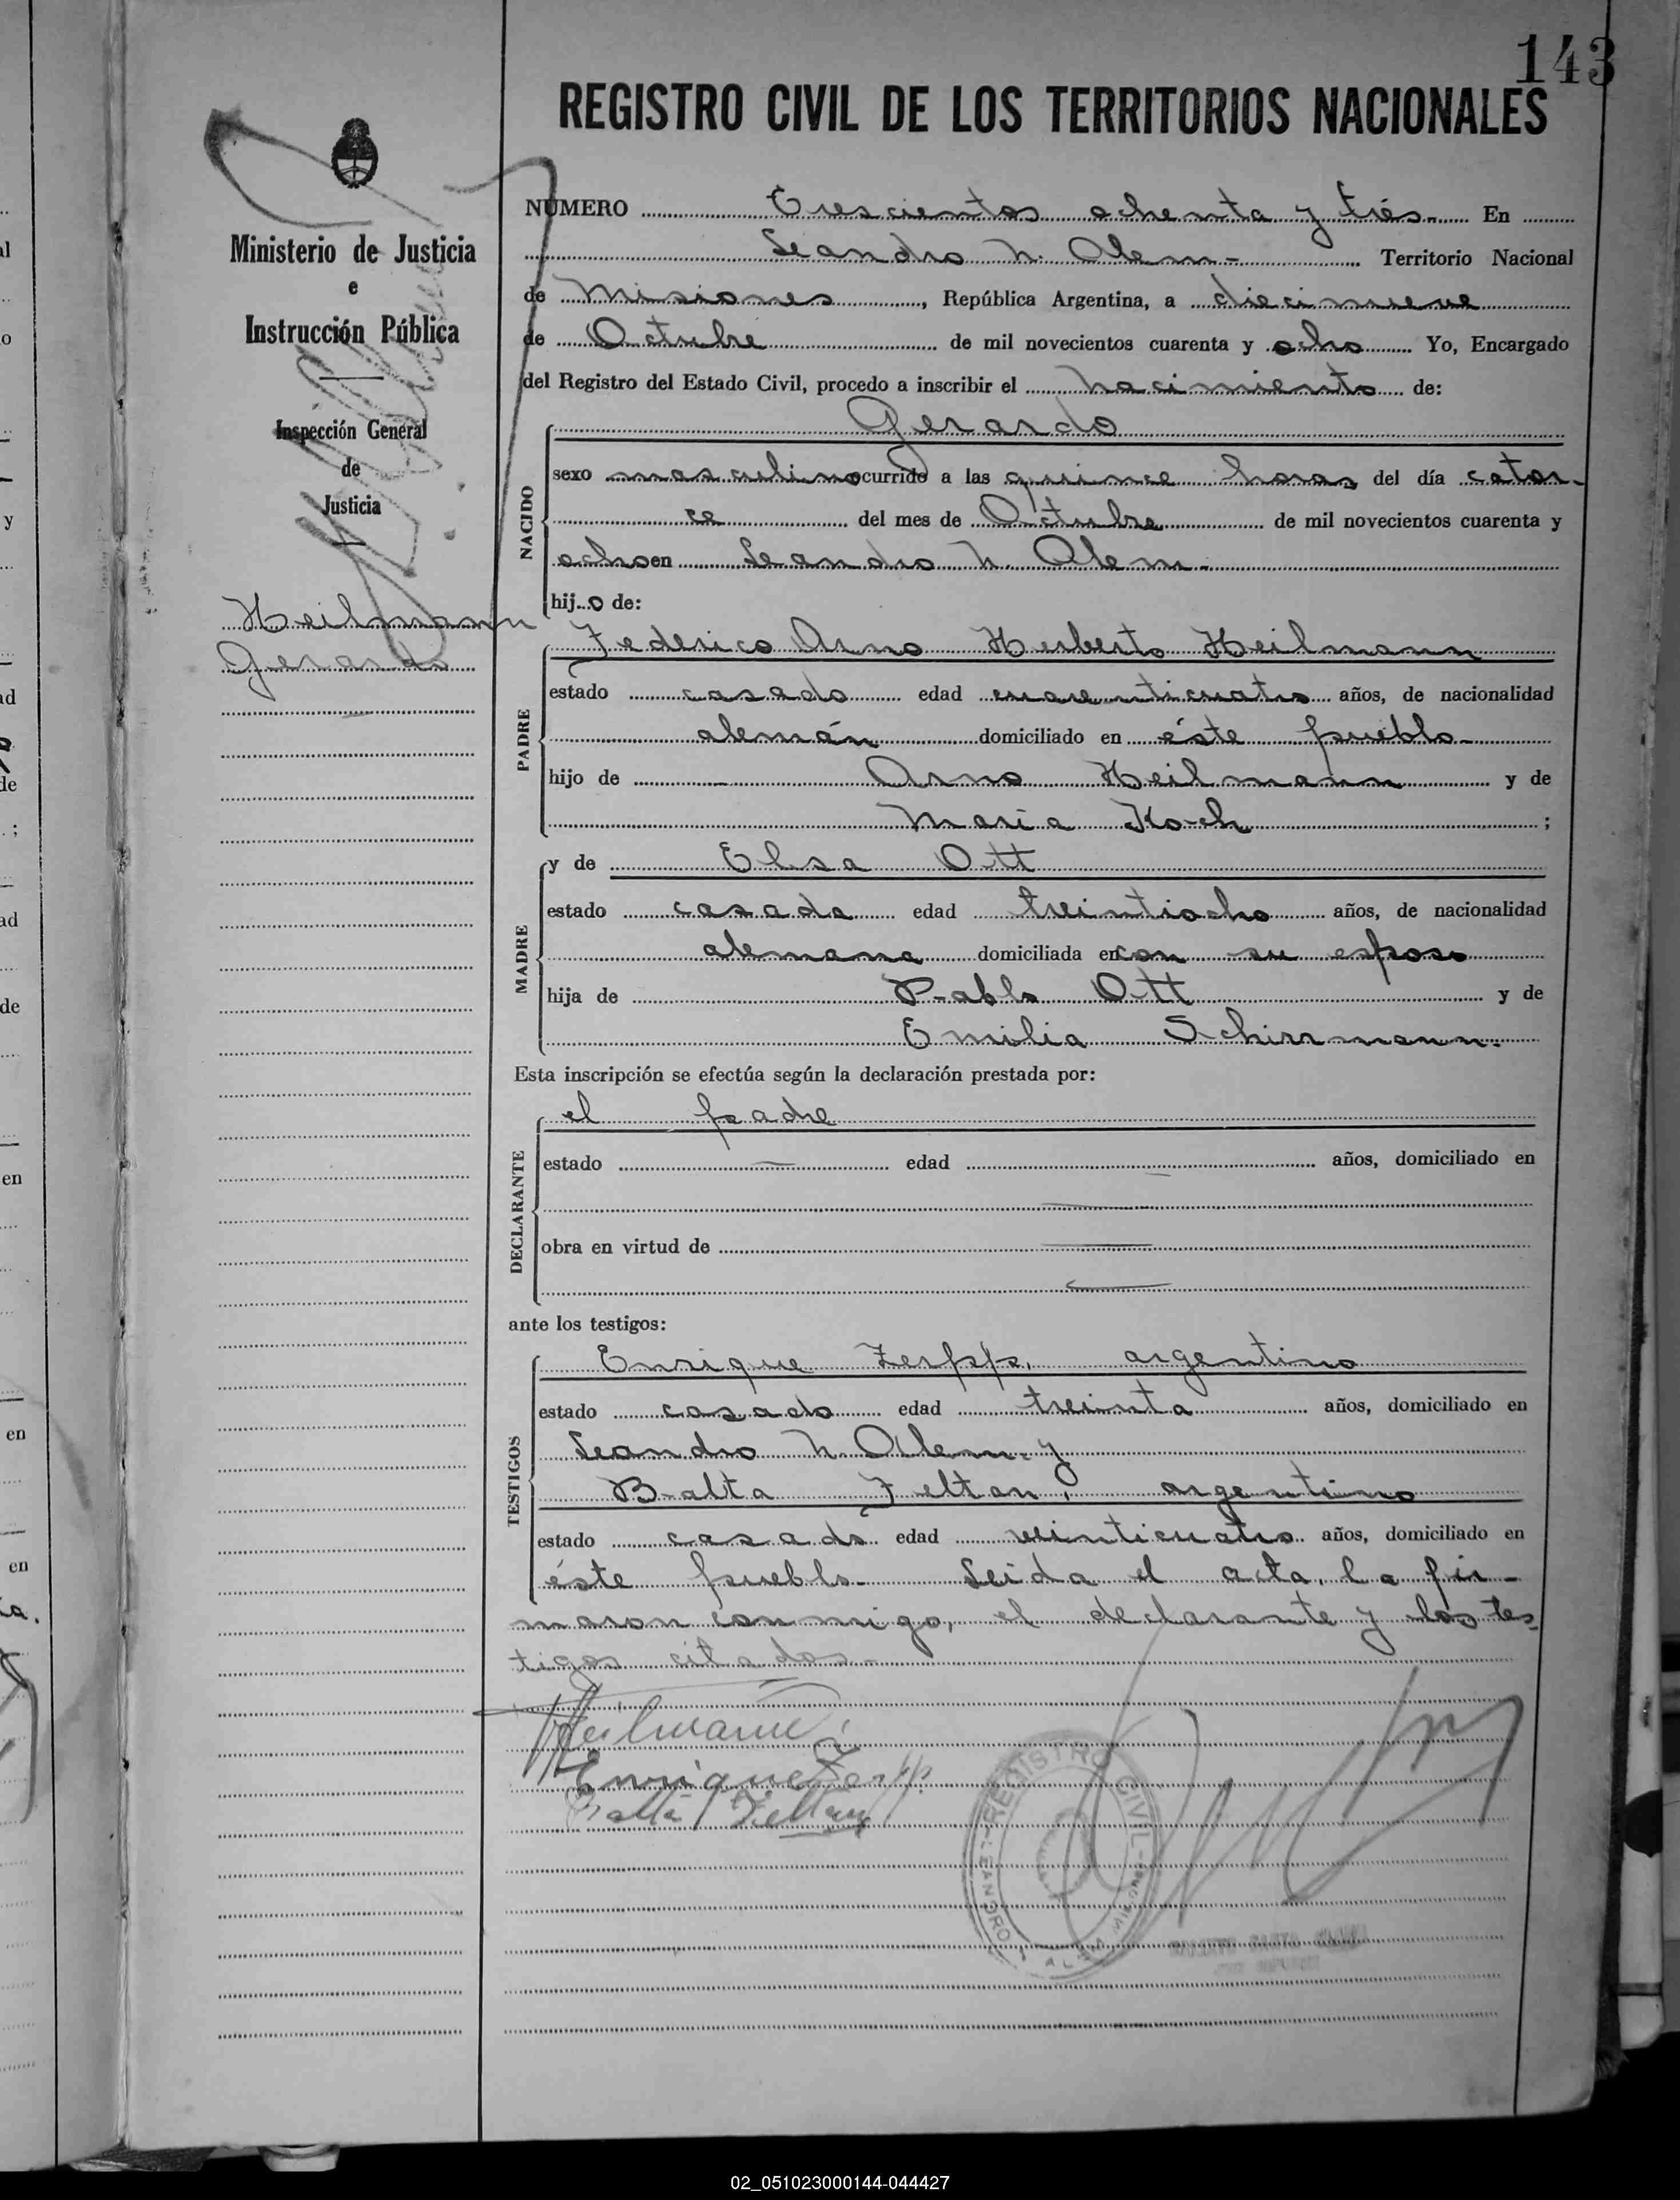 143
REGISTRO CIVIL DE LOS TERRITORIOS NACIONALES
Ministerio de Justicia
e
Instrucción Pública
Inspección General
de
Justicia
Heilmann
Gerardo
NÚMERO Trescientos ochenta y trés.- En
Leandro N. Alem - Territorio Nacional
de Misiones, República Argentina, a diecinueve
de Octubre de mil novecientos cuarenta y ocho Yo, Encargado
del Registro del Estado Civil, procedo a inscribir el nacimiento de:
Gerardo
NACIDO
sexo masculino ocurrido a las quince horas del día cator-
ce del mes de Octubre de mil novecientos cuarenta y
ocho en Leandro N. Alem.-
hijo de:
Federico Arno Herberto Heilmann
PADRE
estado casado edad cuarenticuatro años, de nacionalidad
alemán domiciliado en éste pueblo-
hijo de Arno Heilmann y de
Maria Koch ;
y de Elsa Ott
MADRE
estado casada edad treintiocho años, de nacionalidad
alemana domiciliada en con su esposo
hija de Pablo Ott y de
Emilia Schirrmann.-
Esta inscripción se efectúa según la declaración prestada por:
el padre
DECLARANTE
estado — edad — años, domiciliado en
—
obra en virtud de —
—
ante los testigos:
Enrique Zerpp, argentino
TESTIGOS
estado casado edad treinta años, domiciliado en
Leandro N. Alem y
Balta Feltan, argentino
estado casado edad veinticuatro años, domiciliado en
éste pueblo.- Leida el acta, la fir-
maron conmigo, el declarante y los tes-
tigos citados.-
Heilmann
Enrique Zerpp
Balta Feltan
REGISTRO CIVIL
LEANDRO N. ALEM MISIONES
02_051023000144-044427